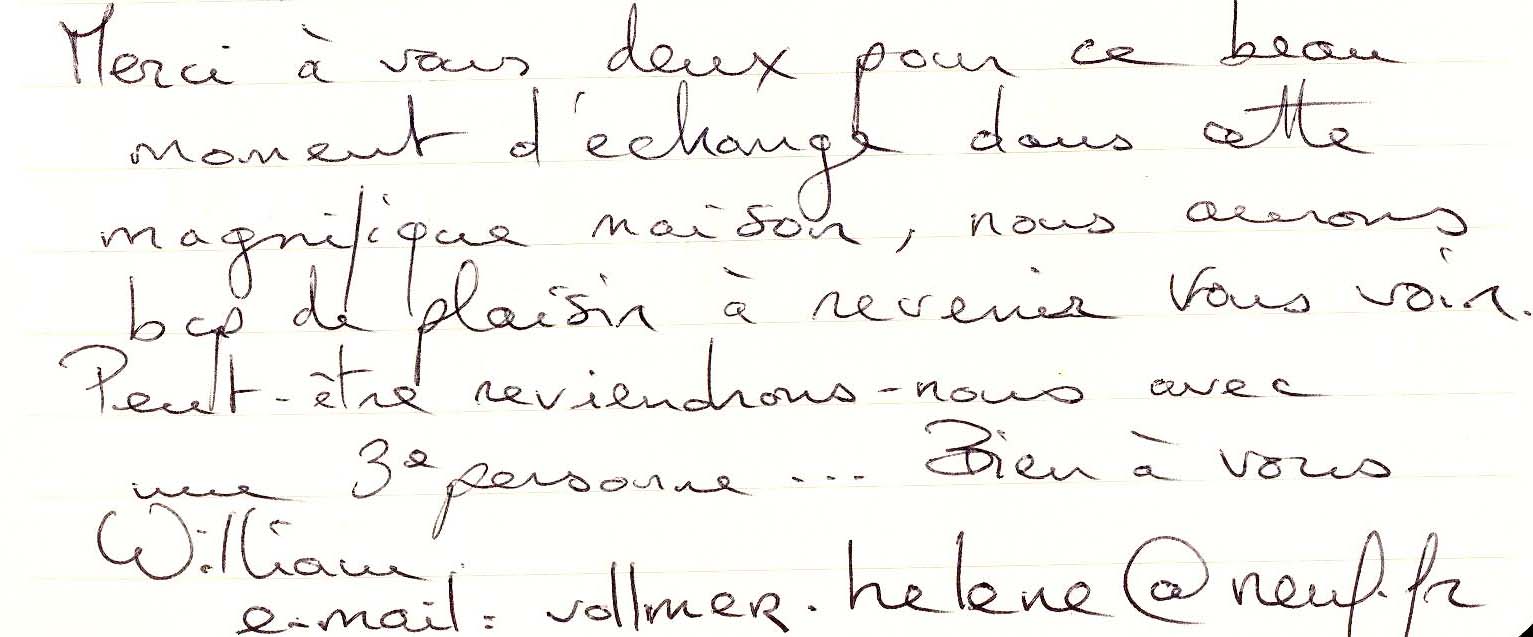 Merci à vous deux pour ce beau
moment d'échange dans cette
magnifique maison, nous aurons
bcp de plaisir à revenir vous voir.
Peut-être reviendrons-nous avec
une 3e personne... Bien à vous
William
e-mail: vollmer.helene@neuf.fr